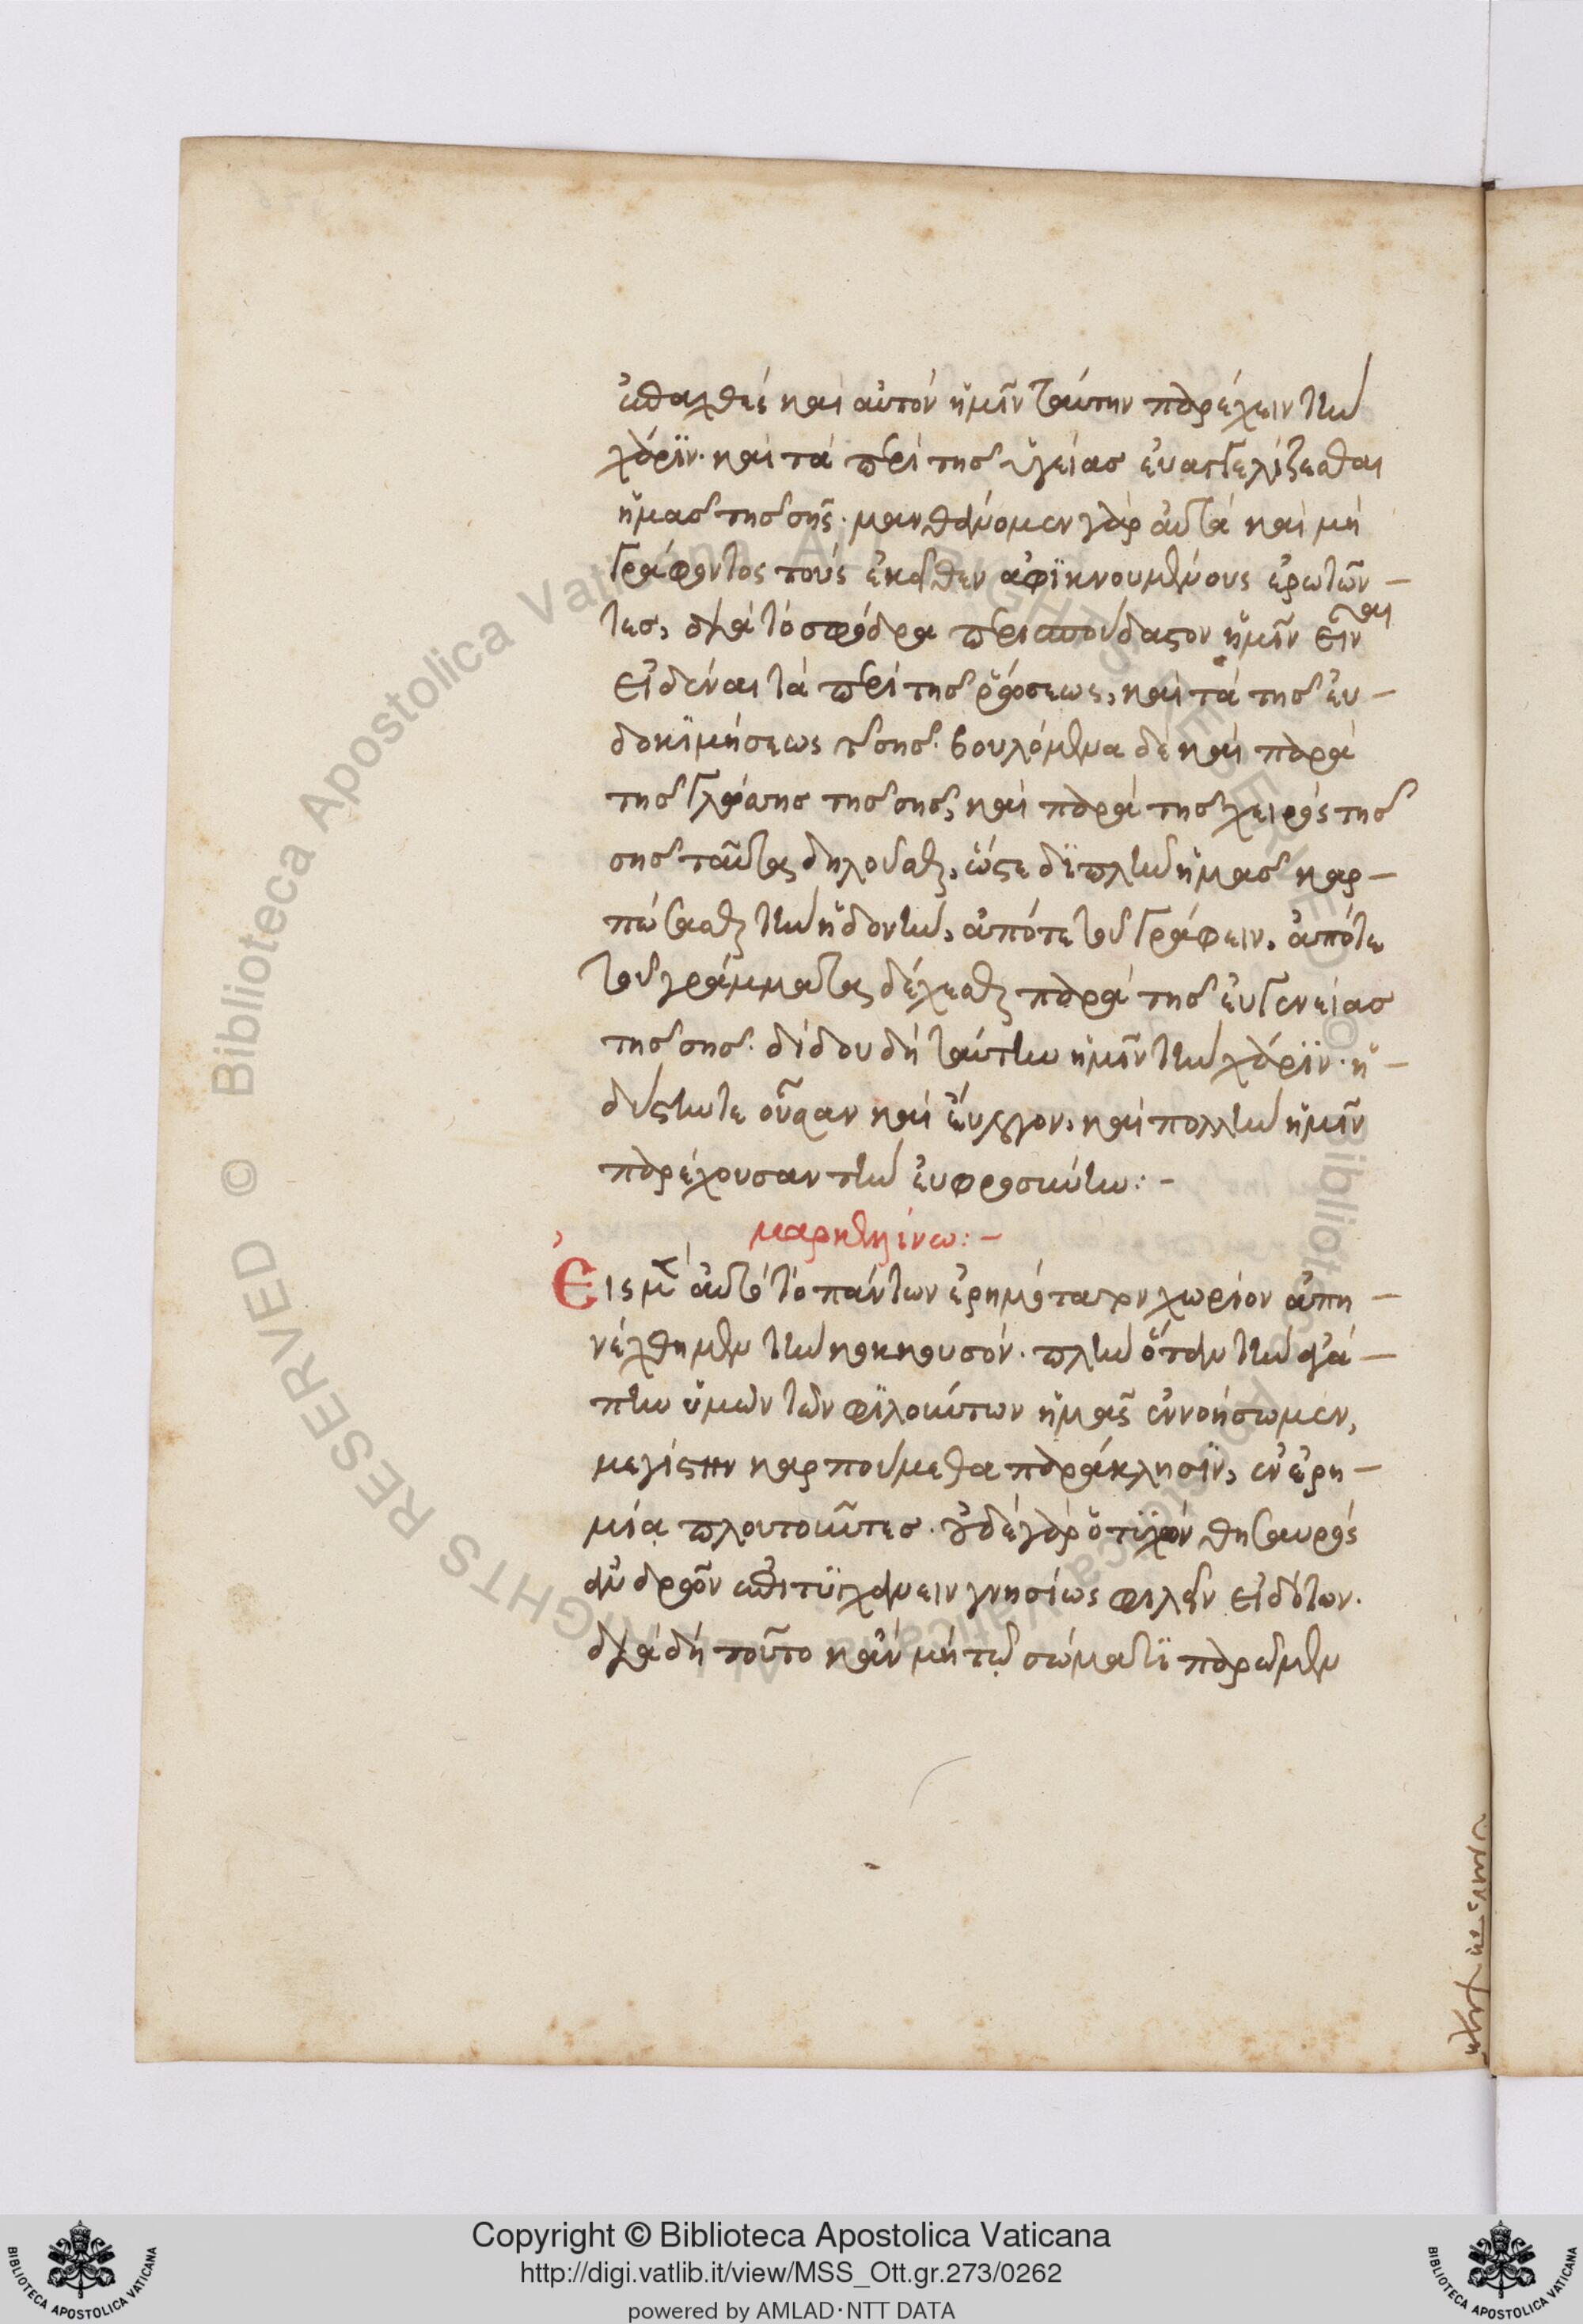 ἐπαχθὲς καὶ αὐτὸν ἡμῖν ταύτην παρέχειν τὴν
χάριν· καὶ τὰ περὶ τῆς ὑγείας εὐαγγελίζεσθαι
ἡμᾶς τῆς σῆς· μανθάνομεν γὰρ αὐτὰ καὶ μὴ
γράφοντος τοὺς ἐκεῖθεν ἀφϊκνουμένους ἐρωτῶν-
τες, διὰ τὸ σφόδρα περισπούδαστον ἡμῖν εἶναι
εἰδέναι τὰ περὶ τῆς ῥώσεως, καὶ τὰ τῆς εὐ-
δοκϊμήσεως τῆς σῆς· βουλόμεθα δὲ καὶ παρὰ
τῆς γλώττης τῆς σῆς καὶ παρὰ τῆς χειρὸς τῆς
σῆς ταῦτα δηλοῦσθαι, ὥστε διπλὴν ἡμᾶς καρ-
ποῦσθαι τὴν ἡδονὴν, ἀπό τε τοῦ γράφειν, ἀπό τε
τοῦ γράμματα δέχεσθαι παρὰ τῆς εὐγενείας
τῆς σῆς· δίδου δὴ ταύτην ἡμῖν τὴν χάριν· ἡ-
δίστην τε οὖσαν καὶ εὔεργον, καὶ πολλὴν ἡμῖν
παρέχουσαν τὴν εὐφροσύνην:-
μαρκελλίνω:-
Εἰς μὲν αὐτὸ τὸ πάντων ἐρημότατον χωρίον ἀπη-
νέχθημεν τὴν κουκουσόν· πλὴν ὅταν τὴν ἀγά-
πην ὑμῶν τῶν φϊλούντων ἡμᾶς ἐννοήσωμεν,
μεγίστην καρπούμεθα παράκλησϊν, ἐν ἐρη-
μίᾳ πλουτοῦντες· οὐδὲ γὰρ ὁ τυχὼν θησαυρὸς
ἀνδρῶν ἐπιτυγχάνειν γνησίως φιλεῖν εἰδότων·
διὰ δὴ τοῦτο κἂν μὴ τῷ σώματϊ παρῶμεν
Copyright © Biblioteca Apostolica Vaticana
http://digi.vatlib.it/view/MSS_Ott.gr.273/0262
powered by AMLAD·NTT DATA